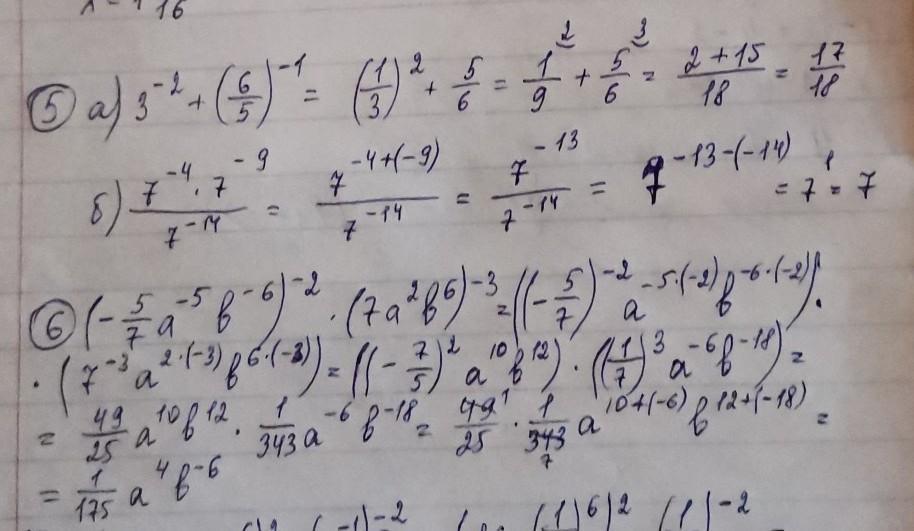 16
⑤ а) 3^-2 + (6/5)^-1 = (1/3)^2 + 5/6 = 1/9 ^2 + 5/6 ^3 = (2+15)/18 = 17/18
б) (7^-4 · 7^-9)/7^-14 = 7^(-4+(-9))/7^-14 = 7^-13/7^-14 = 7^(-13-(-14)) = 7^1 = 7
⑥ (-5/7 a^-5 b^-6)^-2 · (7a^2 b^6)^-3 = ((-5/7)^-2 a^(-5·(-2)) b^(-6·(-2))) ·
· (7^-3 a^(2·(-3)) b^(6·(-3))) = ((-7/5)^2 a^10 b^12) · ((1/7)^3 a^-6 b^-18) =
= 49/25 a^10 b^12 · 1/343 a^-6 b^-18 = 49^1/25 · 1/343_7 a^(10+(-6)) b^(12+(-18)) =
= 1/175 a^4 b^-6